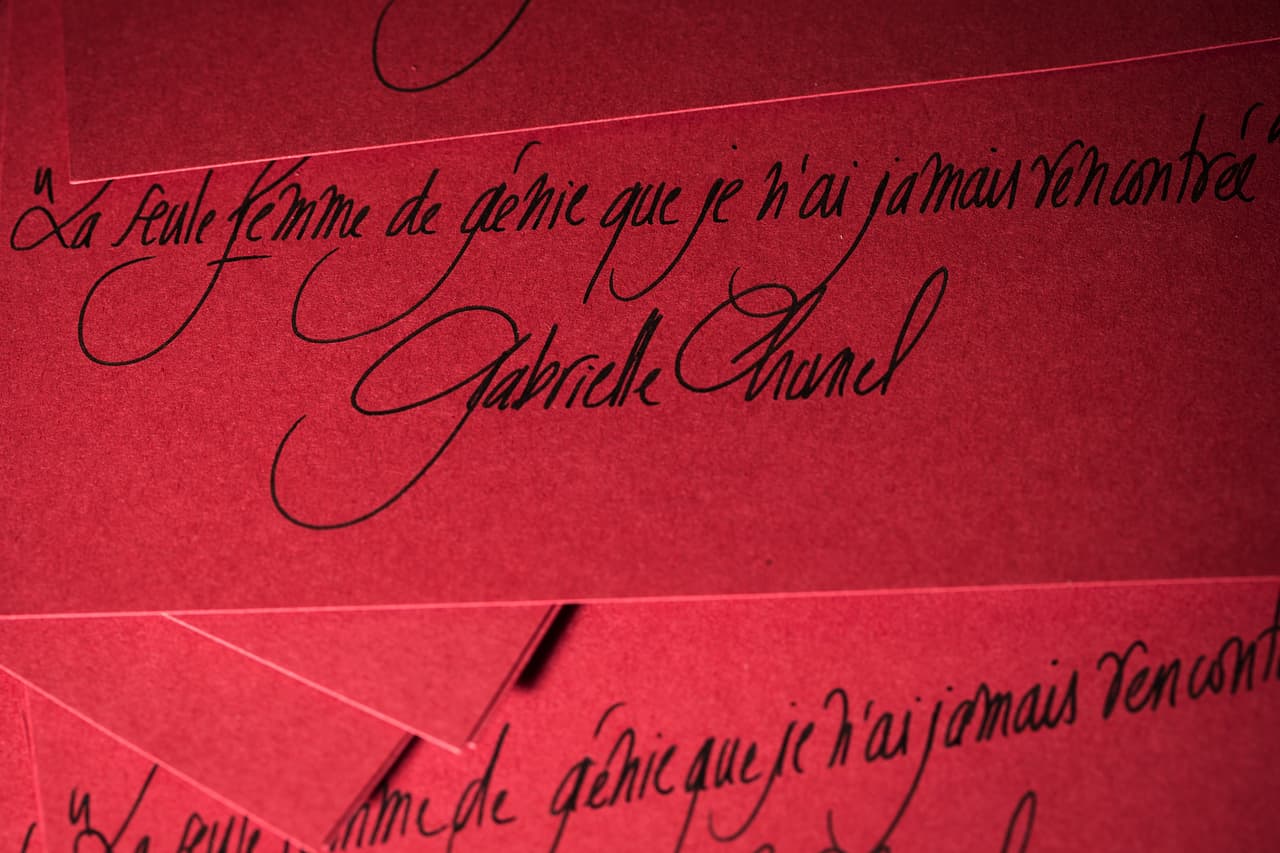 "La seule femme de génie que je n'ai jamais rencontrée"
Gabrielle Chanel
"La seule mme de génie que je n'ai jamais rencont